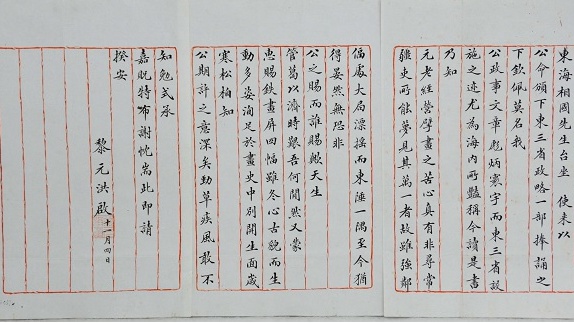 東海相國先生台坐 使來以
公命頒下東三省政略一部捧誦之
下欽佩莫名我
公政事文章彪炳寰宇而東三省設
施之迹尤為海内所豔稱今讀是書
乃知
元老經營擘畫之苦心真有非尋常
雖史所能夢見其萬一者故雖強鄰
偪處大局漂搖而東陲一隅至今猶
得晏然無恐非
公之賜而誰賜歟天生
管葛以濟時艱吾何間然又蒙
惠賜鉄畫屏四幅雖冬心古貌而生
動多姿洵足於畫史中別開生面歲
寒松柏知
公期許之意深矣勁草疾風敢不
知勉式承
嘉貺特布謝忱耑此即請
揆安
黎元洪啟 十一月四日